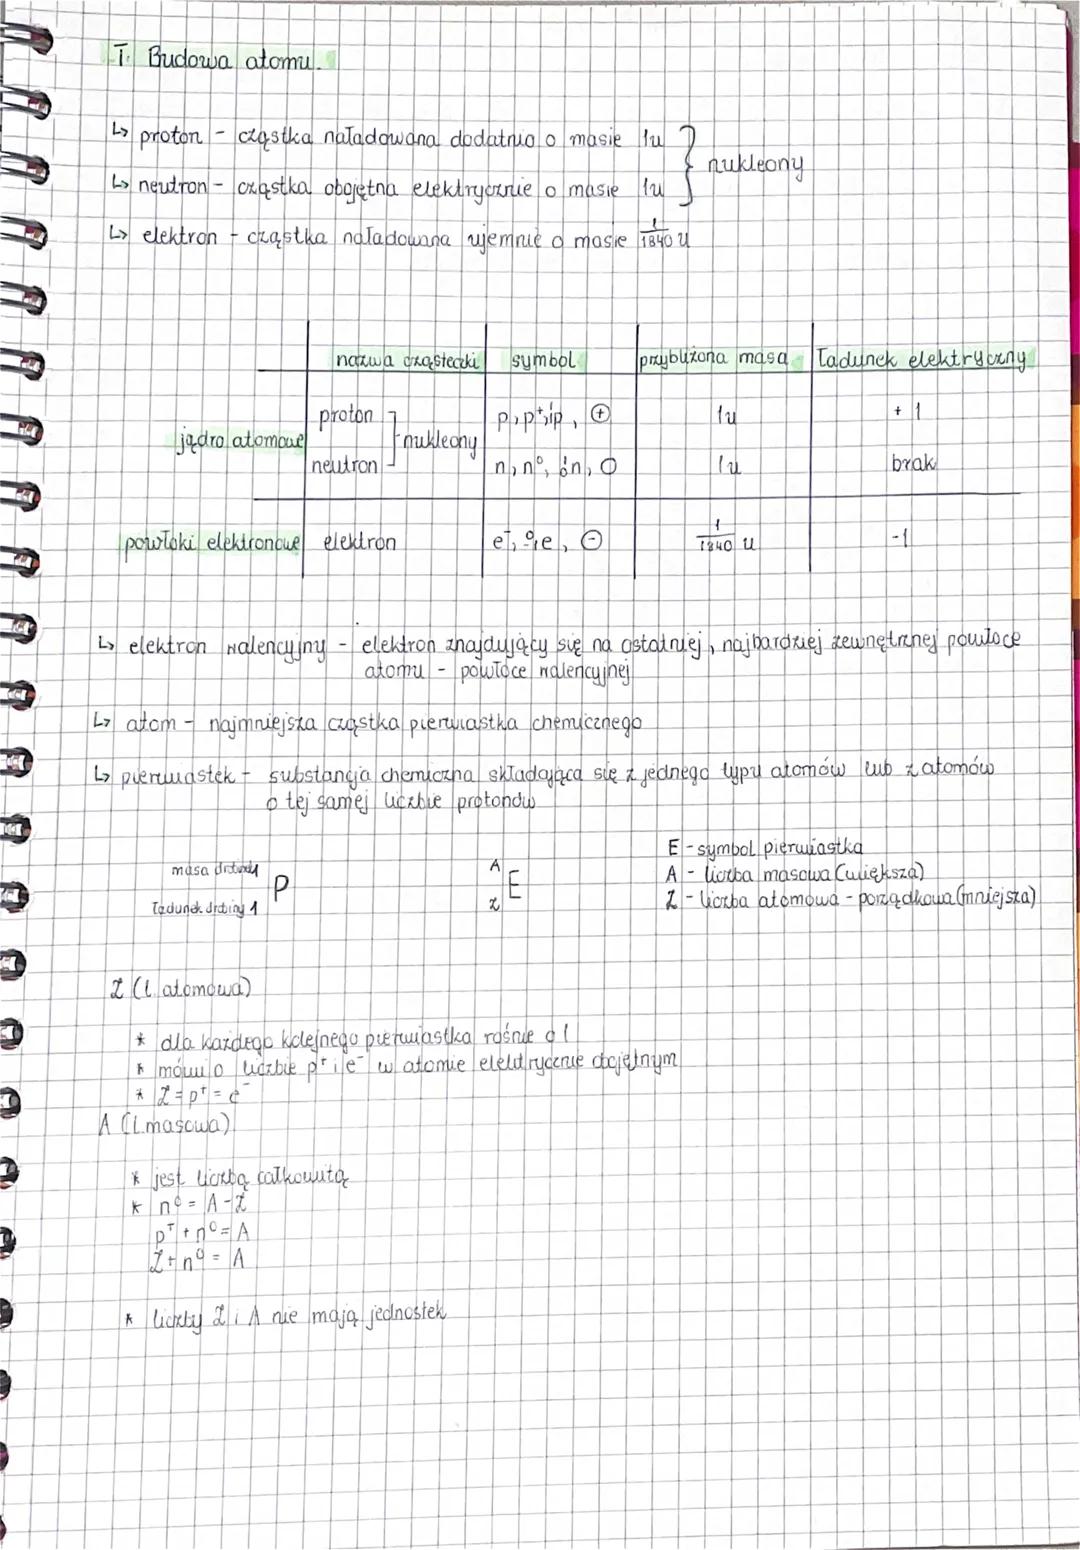 T. Budowa atomu.
↳ proton - cząstka naładowana dodatnio o masie 1u
↳ neutron - cząstka obojętna elektrycznie o masie 1u
} nukleony
↳ elektron - cząstka naładowana ujemnie o masie 1/1840 u
nazwa cząsteczki symbol przybliżona masa ładunek elektryczny
jądro atomowe proton p, p⁺, ¹₁p, ⊕ 1u +1
nukleony
neutron n, n⁰, ¹₀n, O 1u brak
powłoki elektronowe elektron e⁻, ⁰₋₁e, ⊖ 1/1840 u -1
↳ elektron walencyjny - elektron znajdujący się na ostatniej, najbardziej zewnętrznej powłoce
atomu - powłoce walencyjnej
↳ atom - najmniejsza cząstka pierwiastka chemicznego
↳ pierwiastek - substancja chemiczna składająca się z jednego typu atomów lub z atomów
o tej samej liczbie protonów
masa drobiny
P
ładunek drobiny 1
A
E
Z
E - symbol pierwiastka
A - liczba masowa (większa)
Z - liczba atomowa - porządkowa (mniejsza)
Z (l. atomowa)
* dla każdego kolejnego pierwiastka rośnie o 1
* mówi o liczbie p⁺ i e⁻ w atomie elektrycznie obojętnym
* Z = p⁺ = e⁻
A (l. masowa)
* jest liczbą całkowitą
* n⁰ = A - Z
p⁺ + n⁰ = A
Z + n⁰ = A
* liczby Z i A nie mają jednostek